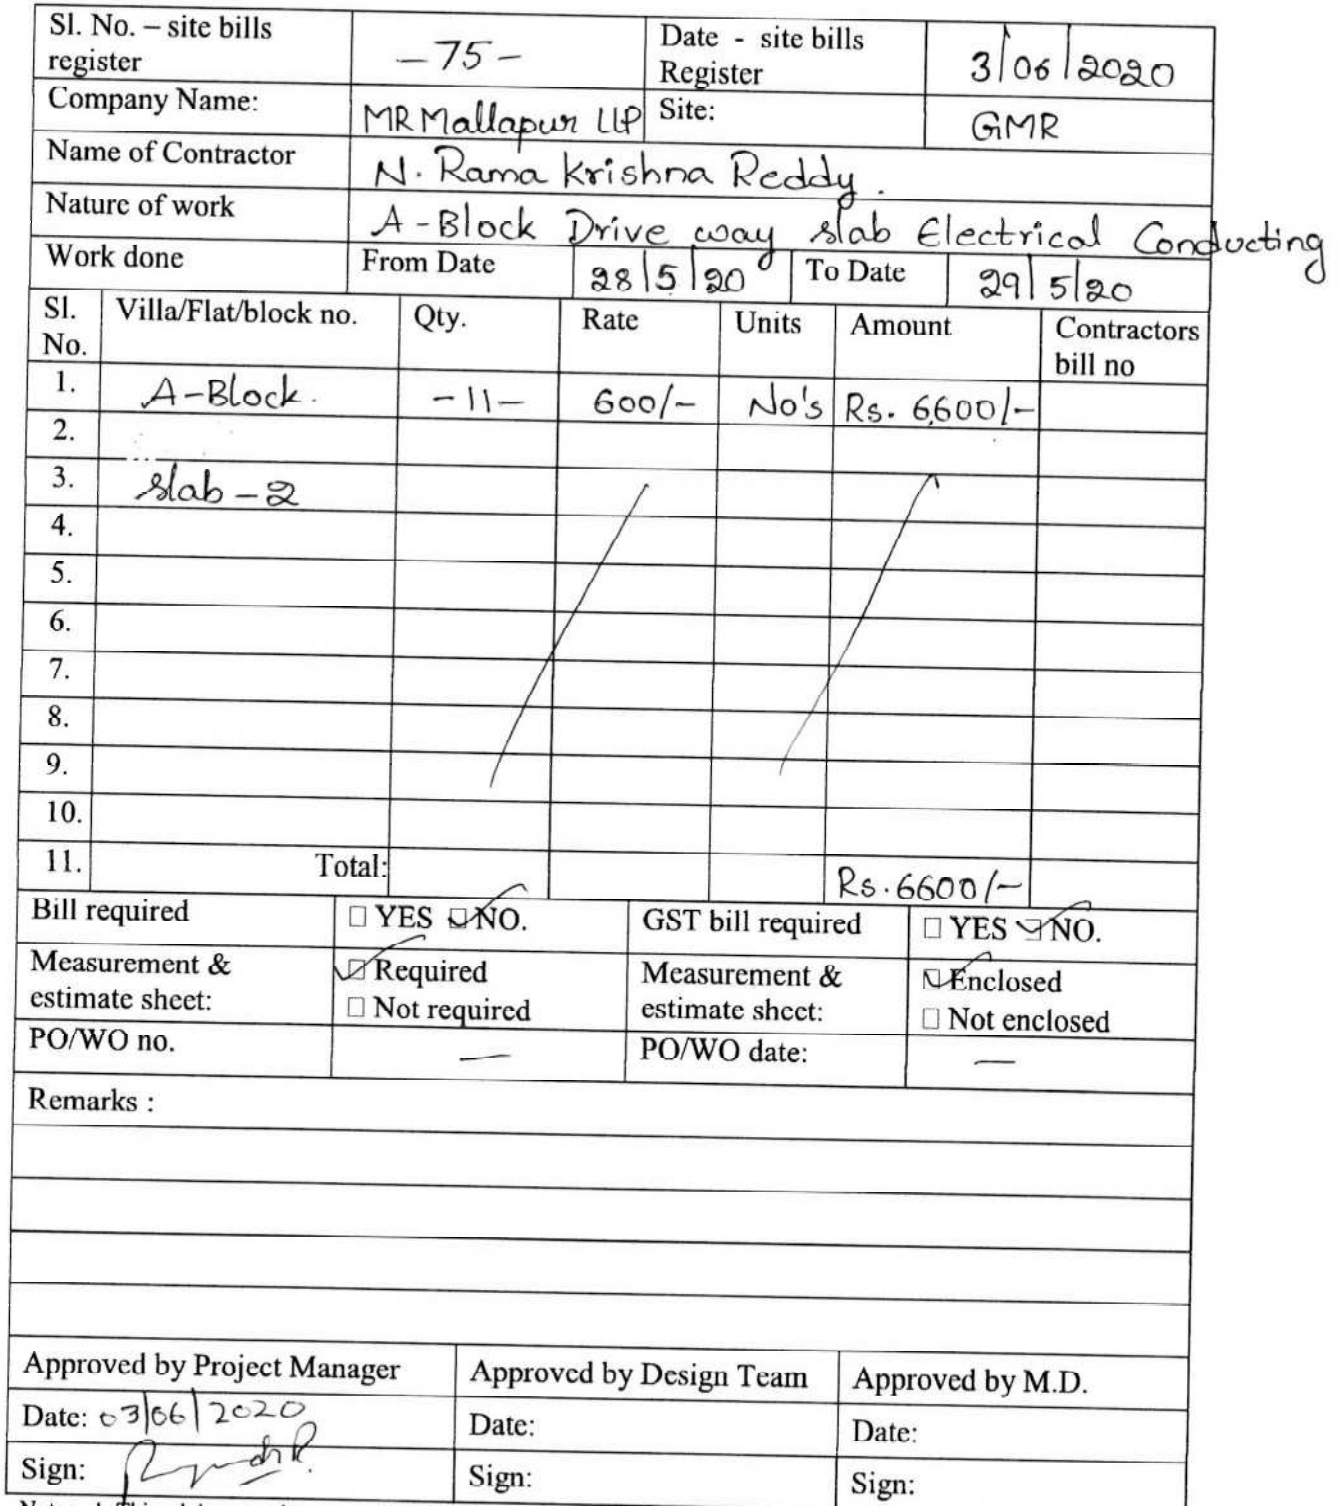 Sl. No. – site bills register -75- Date - site bills Register 3/06/2020
Company Name: MR Mallapur LLP Site: GMR
Name of Contractor N. Rama Krishna Reddy.
Nature of work A-Block Drive way slab Electrical Conducting
Work done From Date 28/5/20 To Date 29/5/20
Sl. No. Villa/Flat/block no. Qty. Rate Units Amount Contractors bill no
1. A-Block. -11- 600/- No's Rs. 6,600/-
2.
3. slab-2
4.
5.
6.
7.
8.
9.
10.
11. Total: Rs. 6600/-
Bill required □ YES □ NO. GST bill required □ YES □ NO.
Measurement & estimate sheet: □ Required □ Not required Measurement & estimate sheet: □ Enclosed □ Not enclosed
PO/WO no. — PO/WO date: —
Remarks :
Approved by Project Manager Approved by Design Team Approved by M.D.
Date: 03/06/2020 Date: Date:
Sign: Sign: Sign: